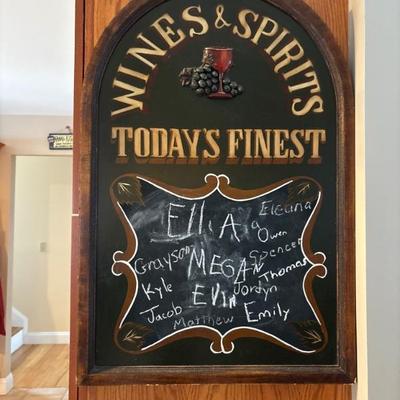 WINES & SPIRITS
TODAY'S FINEST
ElliA
Eleana
Owen
Grayson
MEGAN
Spencer
Thomas
Kyle
EVIN
Jordyn
Jacob
Matthew
Emily